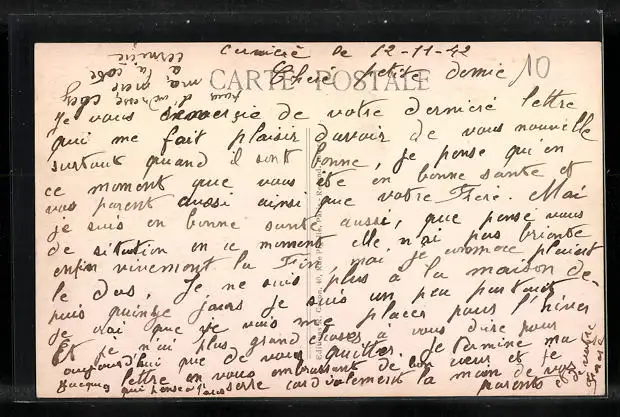 Cernieré le 12-11-42
CARTE POSTALE
10
Cheré petite domie
Je vous remersie de votre dernieré lettre
qui me fait plaisir d'avoir de vous nouvelle
surtout quand il sont bonne, je pense qu'en
ce moment que vous ete en bonne sante et
vos parent aussi ainsi que votre Frere. Moi
je suis en bonne sante aussi, que pense vous
de situation en ce moment elle n'ai pas briante
enfin vivement la Fin, moi je commace
le dos, Je ne suis plus à la maison de-
puis quinze jours je suis un peu partout
je vrai que je vais me placer pour l'hiver
Et je n'ai plus grand choses à vous dire pour
aujourd'hui que de vous quitter. Je termine ma
lettre en vous embrassant de bon cœur et je
serre cordialement la main de vos
parents
Jacques qui pense à vous